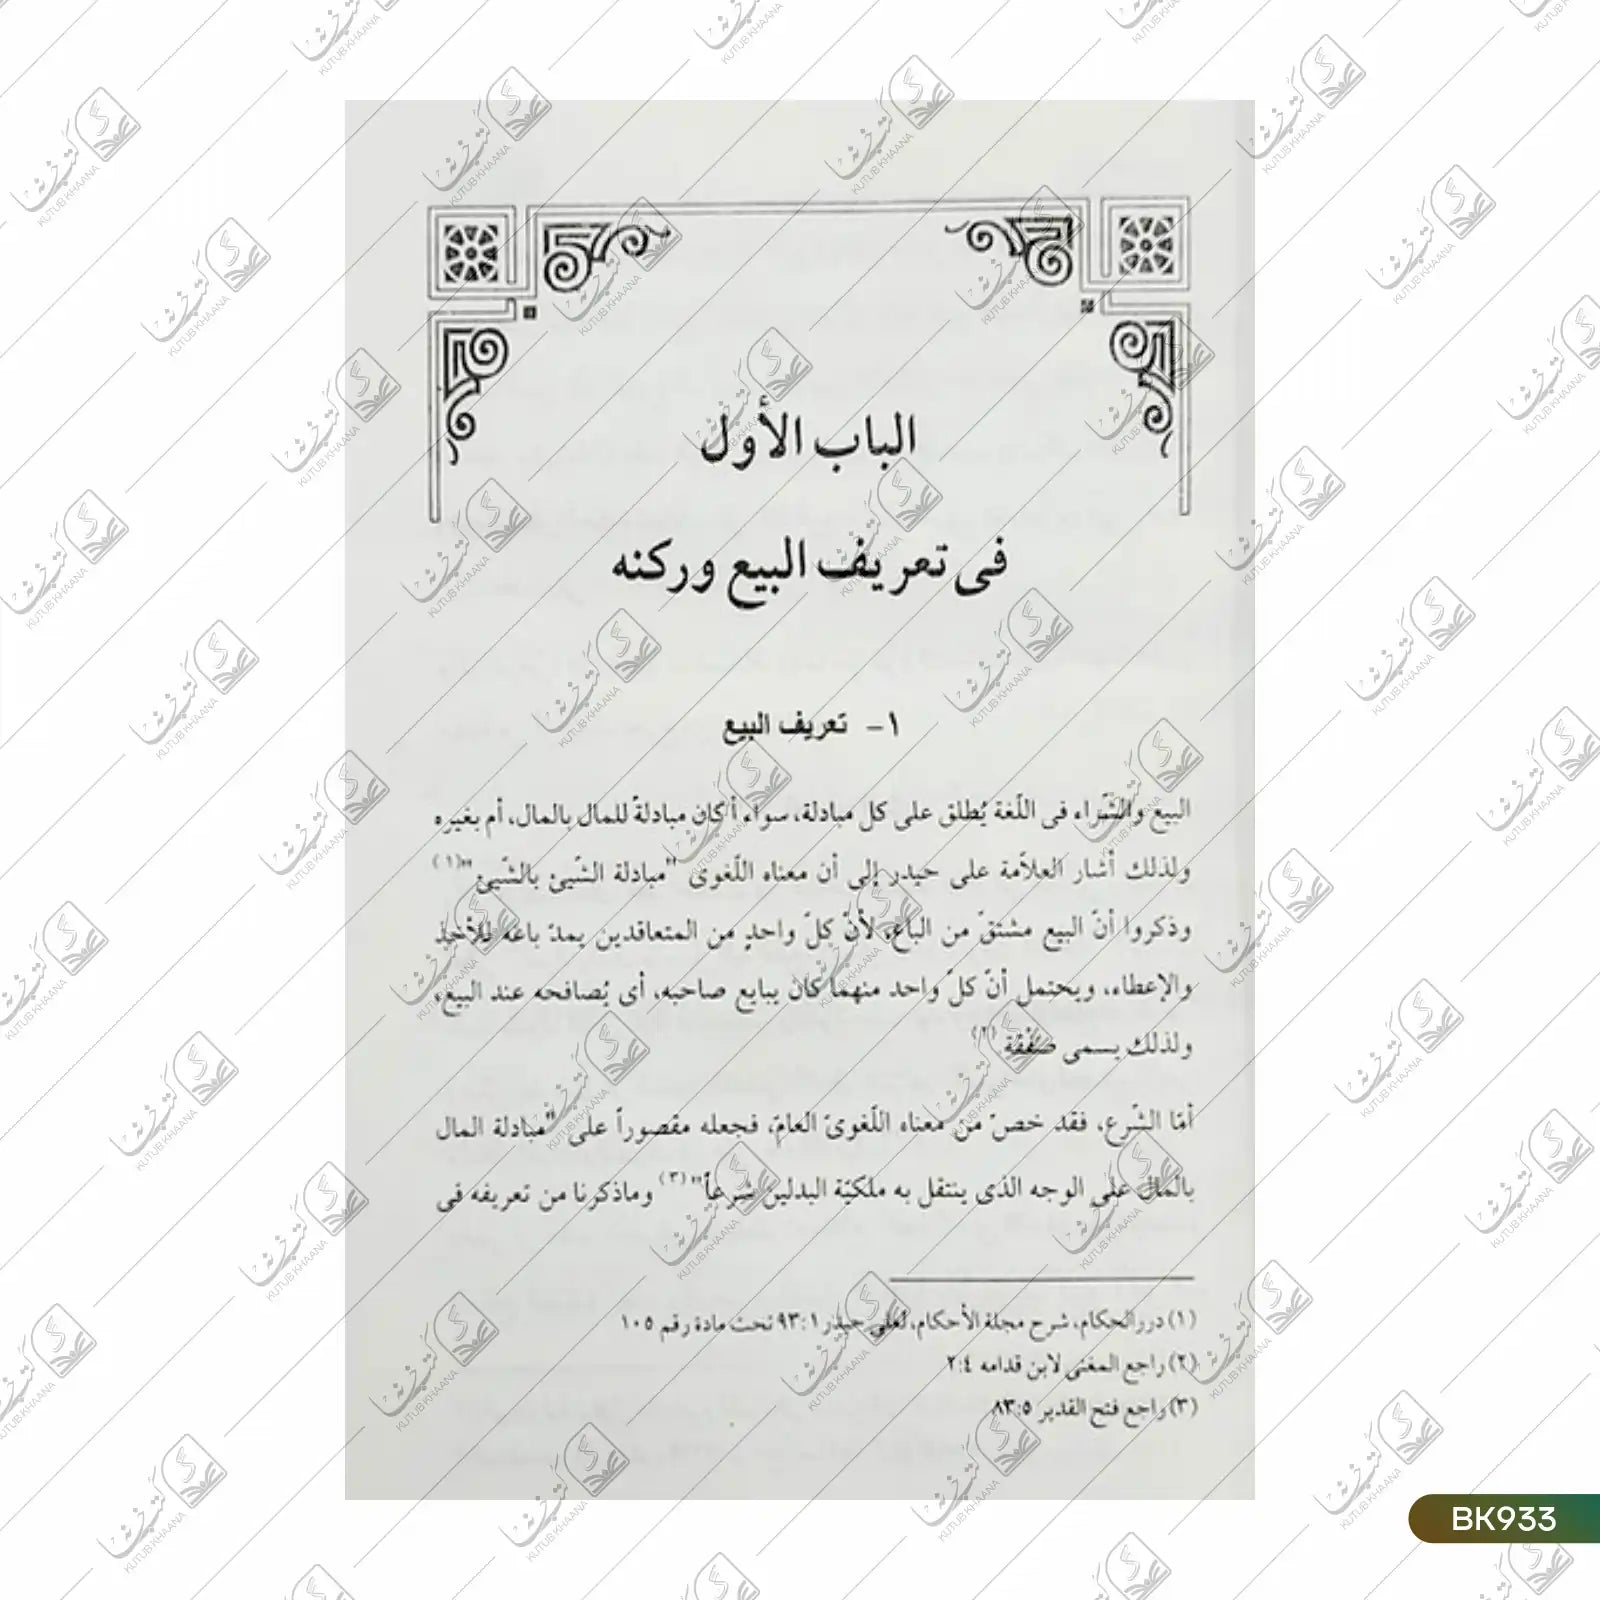 الباب الأول
فى تعريف البيع وركنه
١- تعريف البيع
البيع والشّراء فى اللّغة يُطلق على كل مبادلة، سواء أكان مبادلةً للمال بالمال، أم بغيره
ولذلك أشار العلاّمة على حيدر إلى أن معناه اللّغوى "مبادلة الشّيئ بالشّيئ"(١)
وذكروا أنّ البيع مشتقّ من الباع، لأنّ كلّ واحدٍ من المتعاقدين يمدّ باعه للأخذ
والإعطاء، ويحتمل أنّ كلّ واحد منهما كان يبايع صاحبه، أى يُصافحه عند البيع،
ولذلك يسمى صفْقة (٢)
أمّا الشّرع، فقد خصّ من معناه اللّغوىّ العامّ، فجعله مقصوراً على "مبادلة المال
بالمال على الوجه الذى ينتقل به ملكيّة البدلين شرعاً"(٣) وماذكرنا من تعريفه فى
(١) دررالحكام، شرح مجلة الأحكام، لعلى حيدر ٩٣:١ تحت مادة رقم ١٠٥
(٢) راجع المغنى لابن قدامه ٢:٤
(٣) راجع فتح القدير ٨٣:٥
BK933
كتب خانه
KUTUB KHAANA